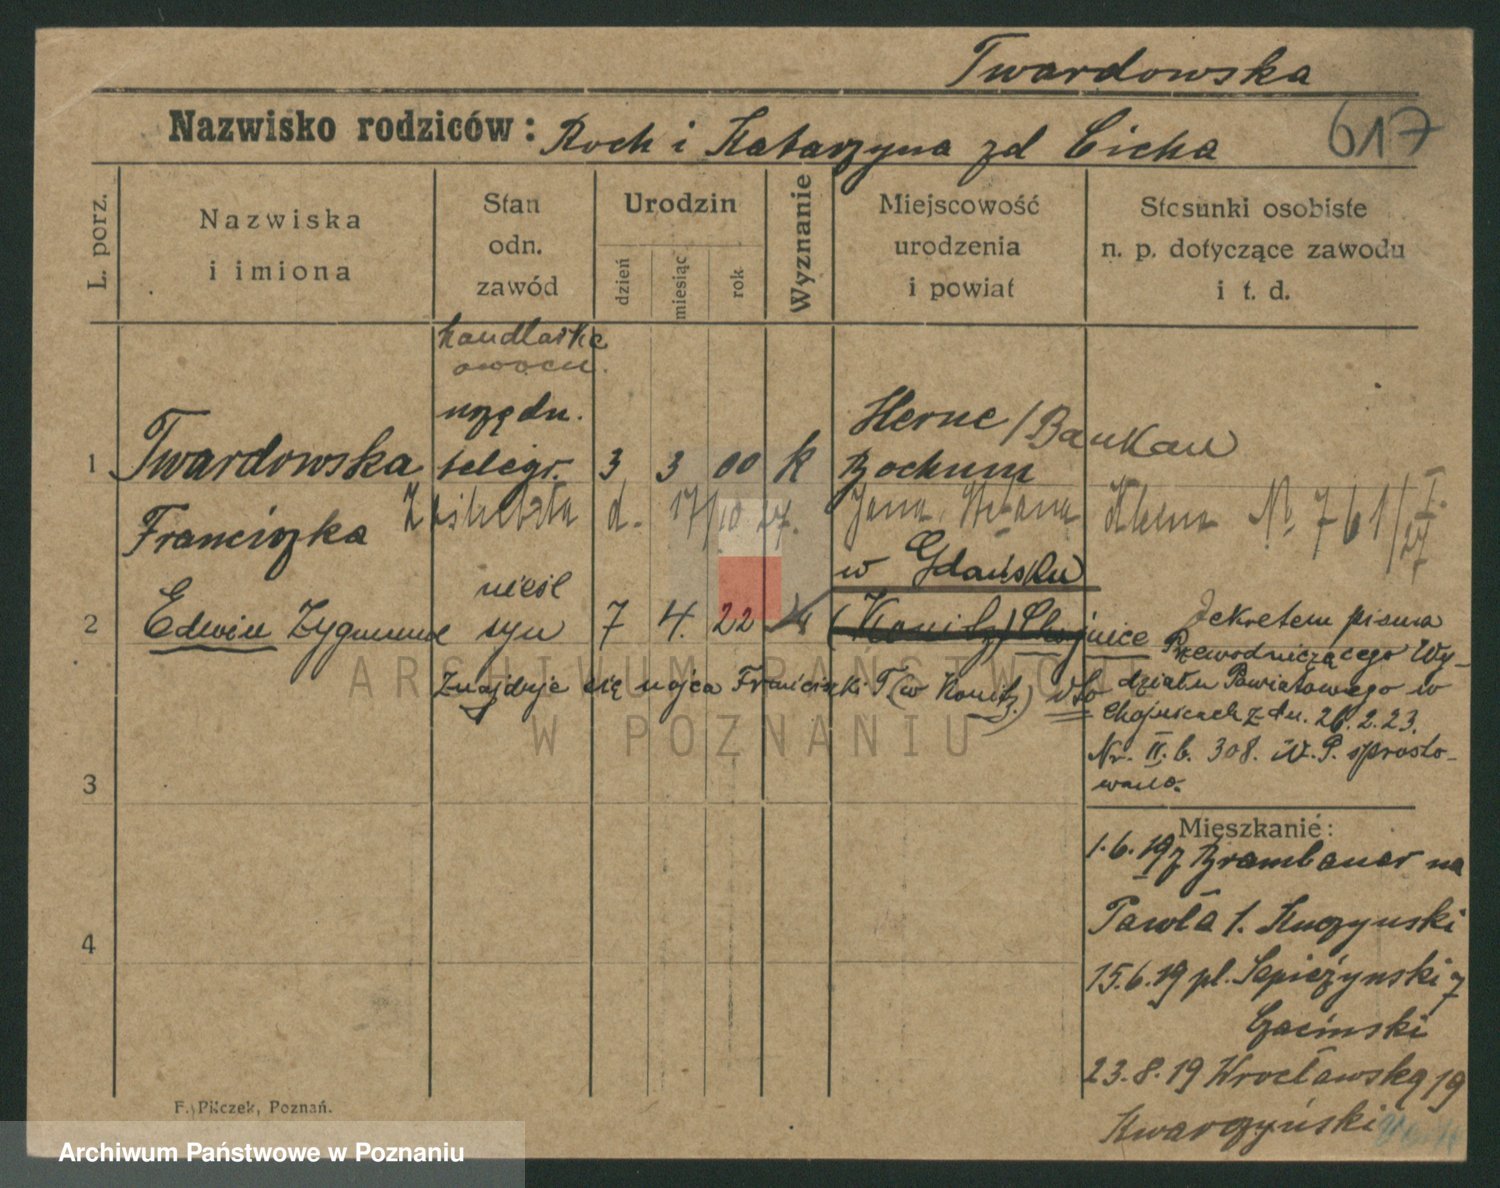 Twardowska
617
Nazwisko rodziców: Roch i Katarzyna zd Cicha
L. porz.
Nazwiska
i imiona
Stan
odn.
zawód
Urodzin
dzień
miesiąc
rok
Wyznanie
Miejscowość
urodzenia
i powiat
Stosunki osobiste
n. p. dotyczące zawodu
i t. d.
handlarka
owocu.
urzędn.
Herne / Baukau
1 Twardowska telegr. 3 3 00 k Bochum
Franciszka d. 17/10 27. Jana, Stefana No 761/I.
27
w Gdańsku
nieśl
2 Edwin Zygmunt syn 7 4. 22 k (Konitz) Chojnice
Dekretem pisma
Przewodniczącego Wy-
Znajduje się u ojca Franciszki T. (w Konitz)
działu Powiatowego w
Chojnicach z dn. 26.2.23.
Nr. II. b. 308. W. P. sprosto-
wano.
3
Mieszkanie:
1.6.19 z Brambauer na
Pawła 1. Kuczynski
4
15.6.19 pl. Sapieżynski 7
Czacinski
23.8.19 Wrocławska 19
Kwarczyński
F. Pilczek, Poznań.
ARCHIWUM PAŃSTWOWE
W POZNANIU
Archiwum Państwowe w Poznaniu